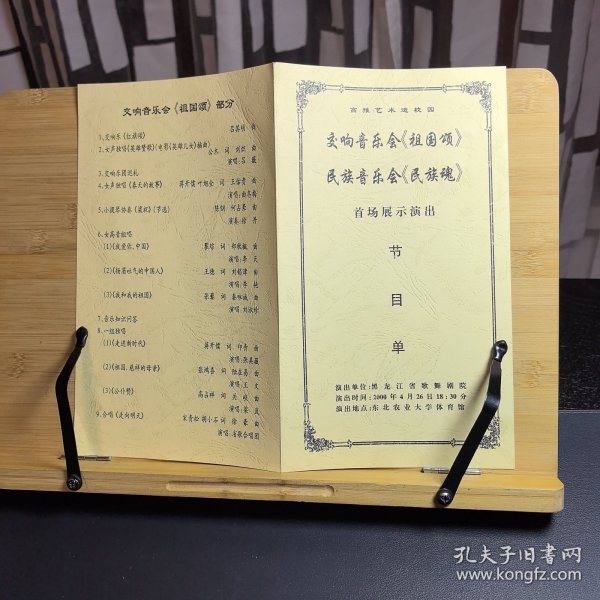 交响音乐会《祖国颂》部分
1、交响乐《红旗颂》 吕其明 曲
2、女声独唱《英雄赞歌》(电影《英雄儿女》插曲)
公木 词 刘炽 曲
演唱:吕薇
3、交响乐团巡礼
4、女声独唱《春天的故事》 蒋开儒 叶旭全 词 王佑贵 曲
5、小提琴协奏《梁祝》(节选) 陈钢 何占豪 曲
演奏:徐丹
6、女高音组唱
(1)《我爱你,中国》 瞿琮 词 郑秋枫 曲
演唱:李天
(2)《扬眉吐气的中国人》 王德 词 刘锡津 曲
(3)《我和我的祖国》 张藜 词 秦咏诚 曲
7、音乐知识问答
8、一组独唱
(1)《走进新时代》 蒋开儒 词 印青 曲
(2)《祖国,慈祥的母亲》 张鸿喜 词 陆在易 曲
演唱:王文
(3)《公仆赞》
9、合唱《走向明天》
演唱:省歌合唱团
高雅艺术进校园
交响音乐会《祖国颂》
民族音乐会《民族魂》
首场展示演出
节
目
单
演出单位:黑龙江省歌舞剧院
演出时间:2000年4月26日18:30分
演出地点:东北农业大学体育馆
孔夫子旧书网
www.kongfz.com